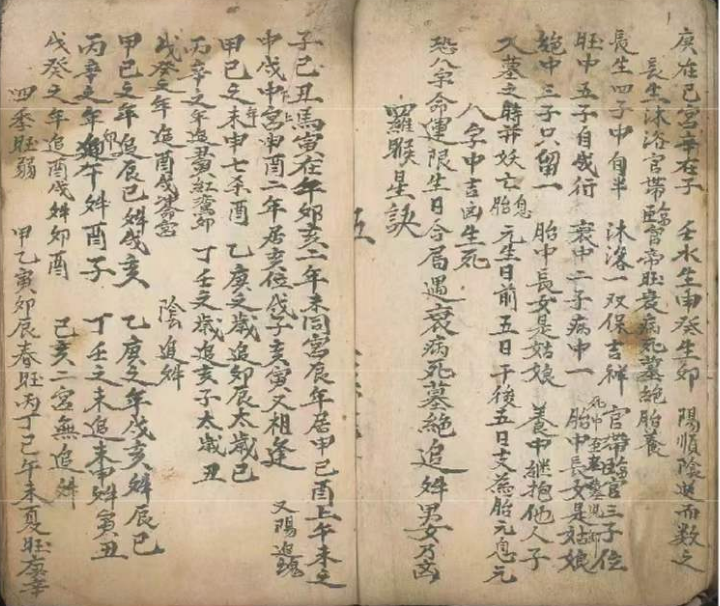 庚在巳宮辛在子 壬水生申癸生卯 陽順陰逆而數之
長生沐浴官帶臨官帝旺衰病死墓絕胎養
長生四子中旬半 沐浴一双保吉祥 官帶臨官三子位
旺中五子自成行 衰中二子病中一 死中至老
絕中三子只留一 胎中長女是姑娘 養中継抱他人子
入墓之時并妖亡 胎中長女是姑娘
胎息元生日前五日干後五日支為胎元息元
八字中吉凶生死
恐八字命運限生日合局遇衰病死墓絕追姅男女乃凶
羅猴星訣
五
子己丑馬寅在午卯亥二年未同宮辰年居甲己酉上午未之
申戌中宮申酉二年居亥位戊子亥寅又相逢 又陽追魂
甲己之年未申七杀酉 乙庚之歲追卯辰太歲己
丙辛之年追丑寅紅鸞卯 丁壬之歲追亥子太歲丑
戊癸之年追酉戌 陰追姅
甲己之年追辰巳姅戌亥 乙庚之年戌亥姅辰巳
丙辛之年卯午姅酉子 丁壬之未追未申姅寅丑
戊癸之年追酉戌姅卯酉 己亥二宮無追姅
四季旺弱 甲乙寅卯辰春旺丙丁巳午未夏旺庚辛